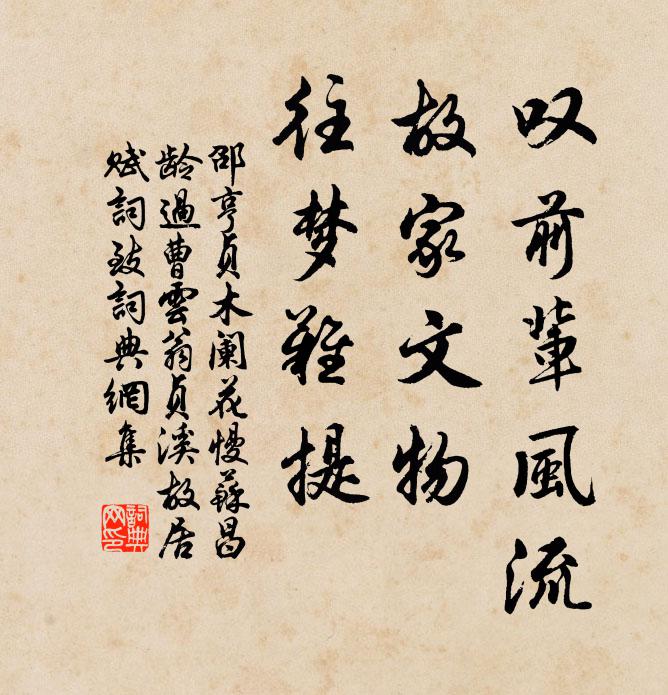 叹前輩風流
故家文物
往梦難提
邵亨貞木闌花慢蘇昌
龄過曹雲翁貞溪故居
赋詞致詞典網集
詞典网印